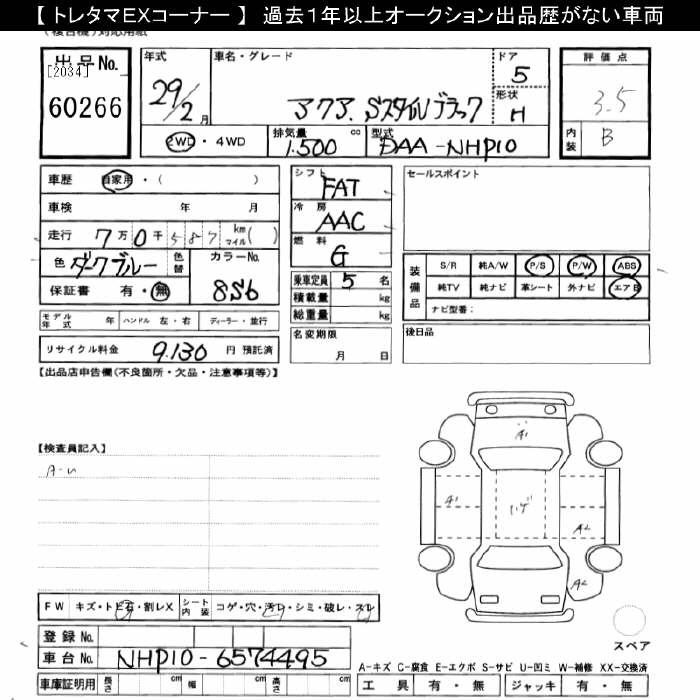 【 トレタマEXコーナー 】 過去1年以上オークション出品歴がない車両
出品No.
[2034]
60266
年式
29/2 月
車名・グレード
アクア Sスタイルブラック
ドア
5
形状
H
2WD ・ 4WD
排気量 cc
1.500
型式
DAA-NHP10
評価点
3.5
内装
B
車歴 自家用・( )
車検 年 月
走行 7万0千587 km マイル( )
色 ダークブルー 色替 カラーNo.
8S6
保証書 有・無
シフト
FAT
冷房
AAC
燃料
G
乗車定員 5 名
積載量 kg
総重量 kg
セールスポイント
装備品
S/R 純A/W P/S P/W ABS
純TV 純ナビ 革シート 外ナビ エアB
ナビ型番:
モデル年式 年 ハンドル 左・右 ディーラー・並行
リサイクル料金 9.130 円 預託済
名変期限
月 日
後日品
【出品店申告欄(不良箇所・欠品・注意事項等)】
【検査員記入】
A-U
A1
A1
A2
A2
スペア
FW キズ・トビ石・割レX シート内装 コゲ・穴・汚レ・シミ・破レ・スレ
登録No.
車台No. NHP10-6574495
車庫証明用 長さ cm 幅 cm 高さ cm
A-キズ C-腐食 E-エクボ S-サビ U-凹ミ W-補修 XX-交換済
工具 有・無 ジャッキ 有・無